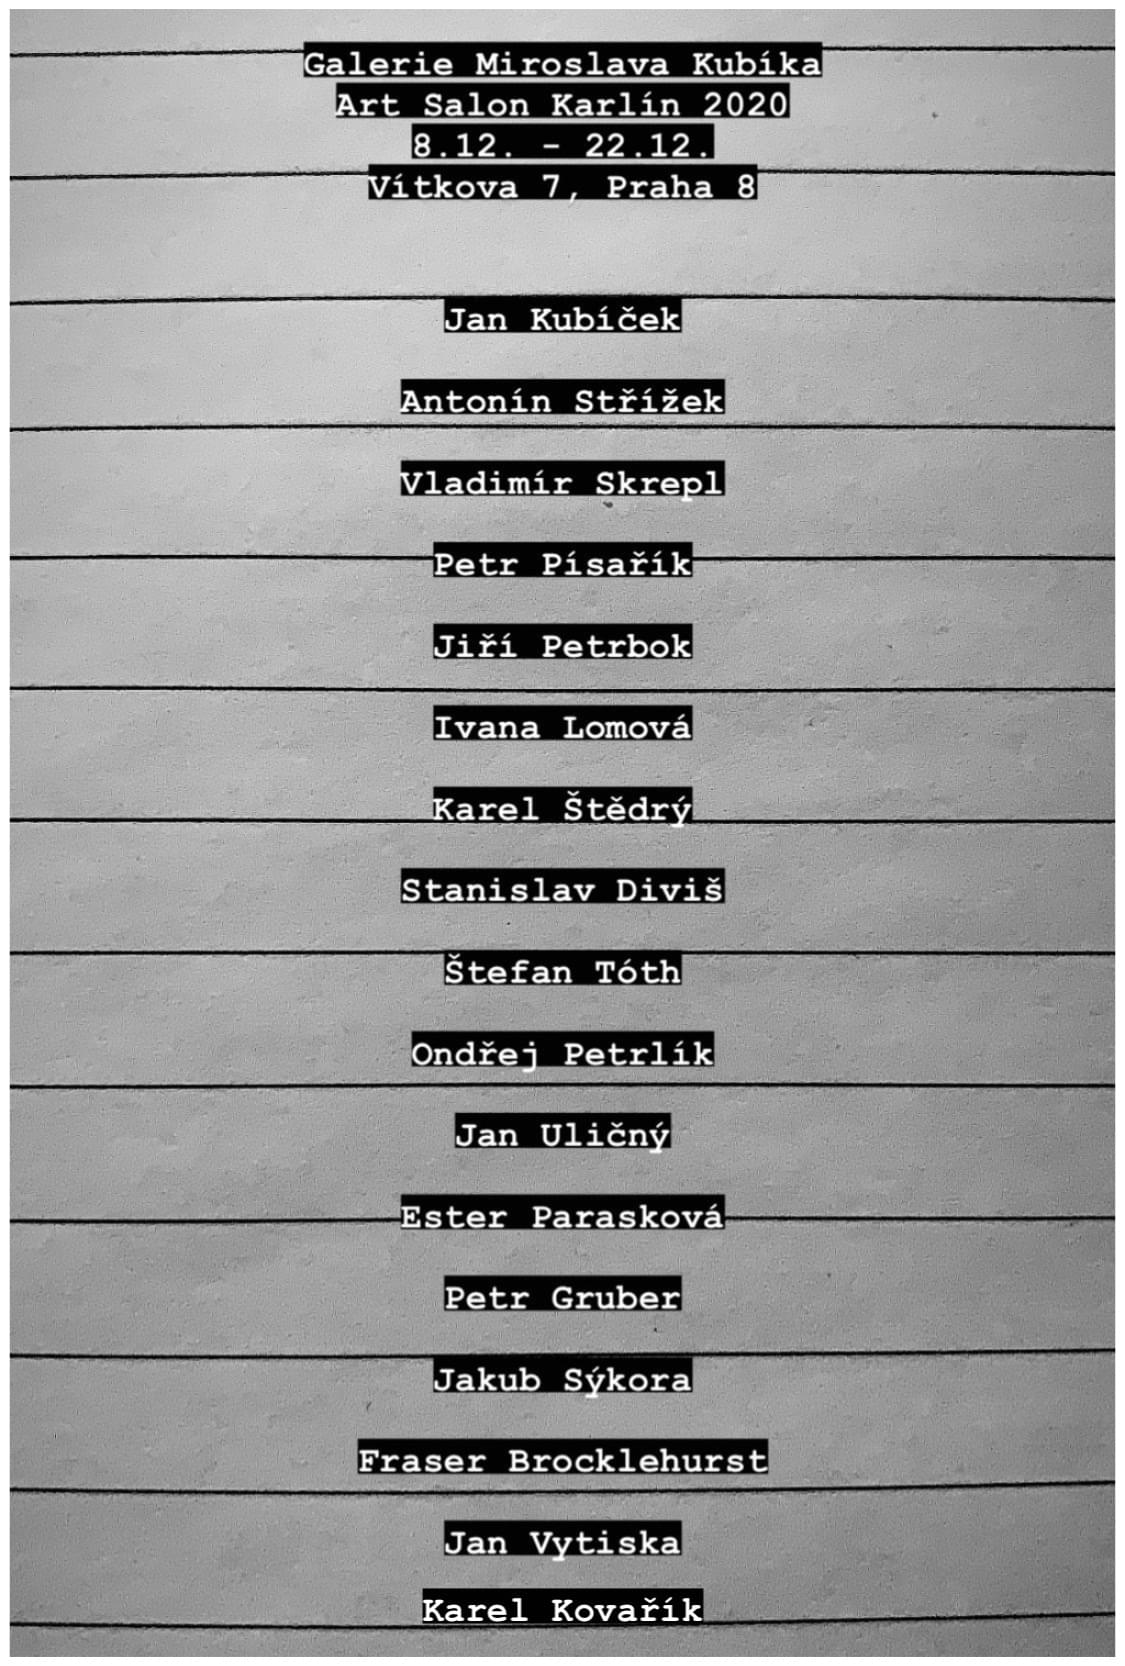 Galerie Miroslava Kubíka
Art Salon Karlín 2020
8.12. - 22.12.
Vítkova 7, Praha 8
Jan Kubíček
Antonín Střížek
Vladimír Skrepl
Petr Písařík
Jiří Petrbok
Ivana Lomová
Karel Štědrý
Stanislav Diviš
Štefan Tóth
Ondřej Petrlík
Jan Uličný
Ester Parasková
Petr Gruber
Jakub Sýkora
Fraser Brocklehurst
Jan Vytiska
Karel Kovařík